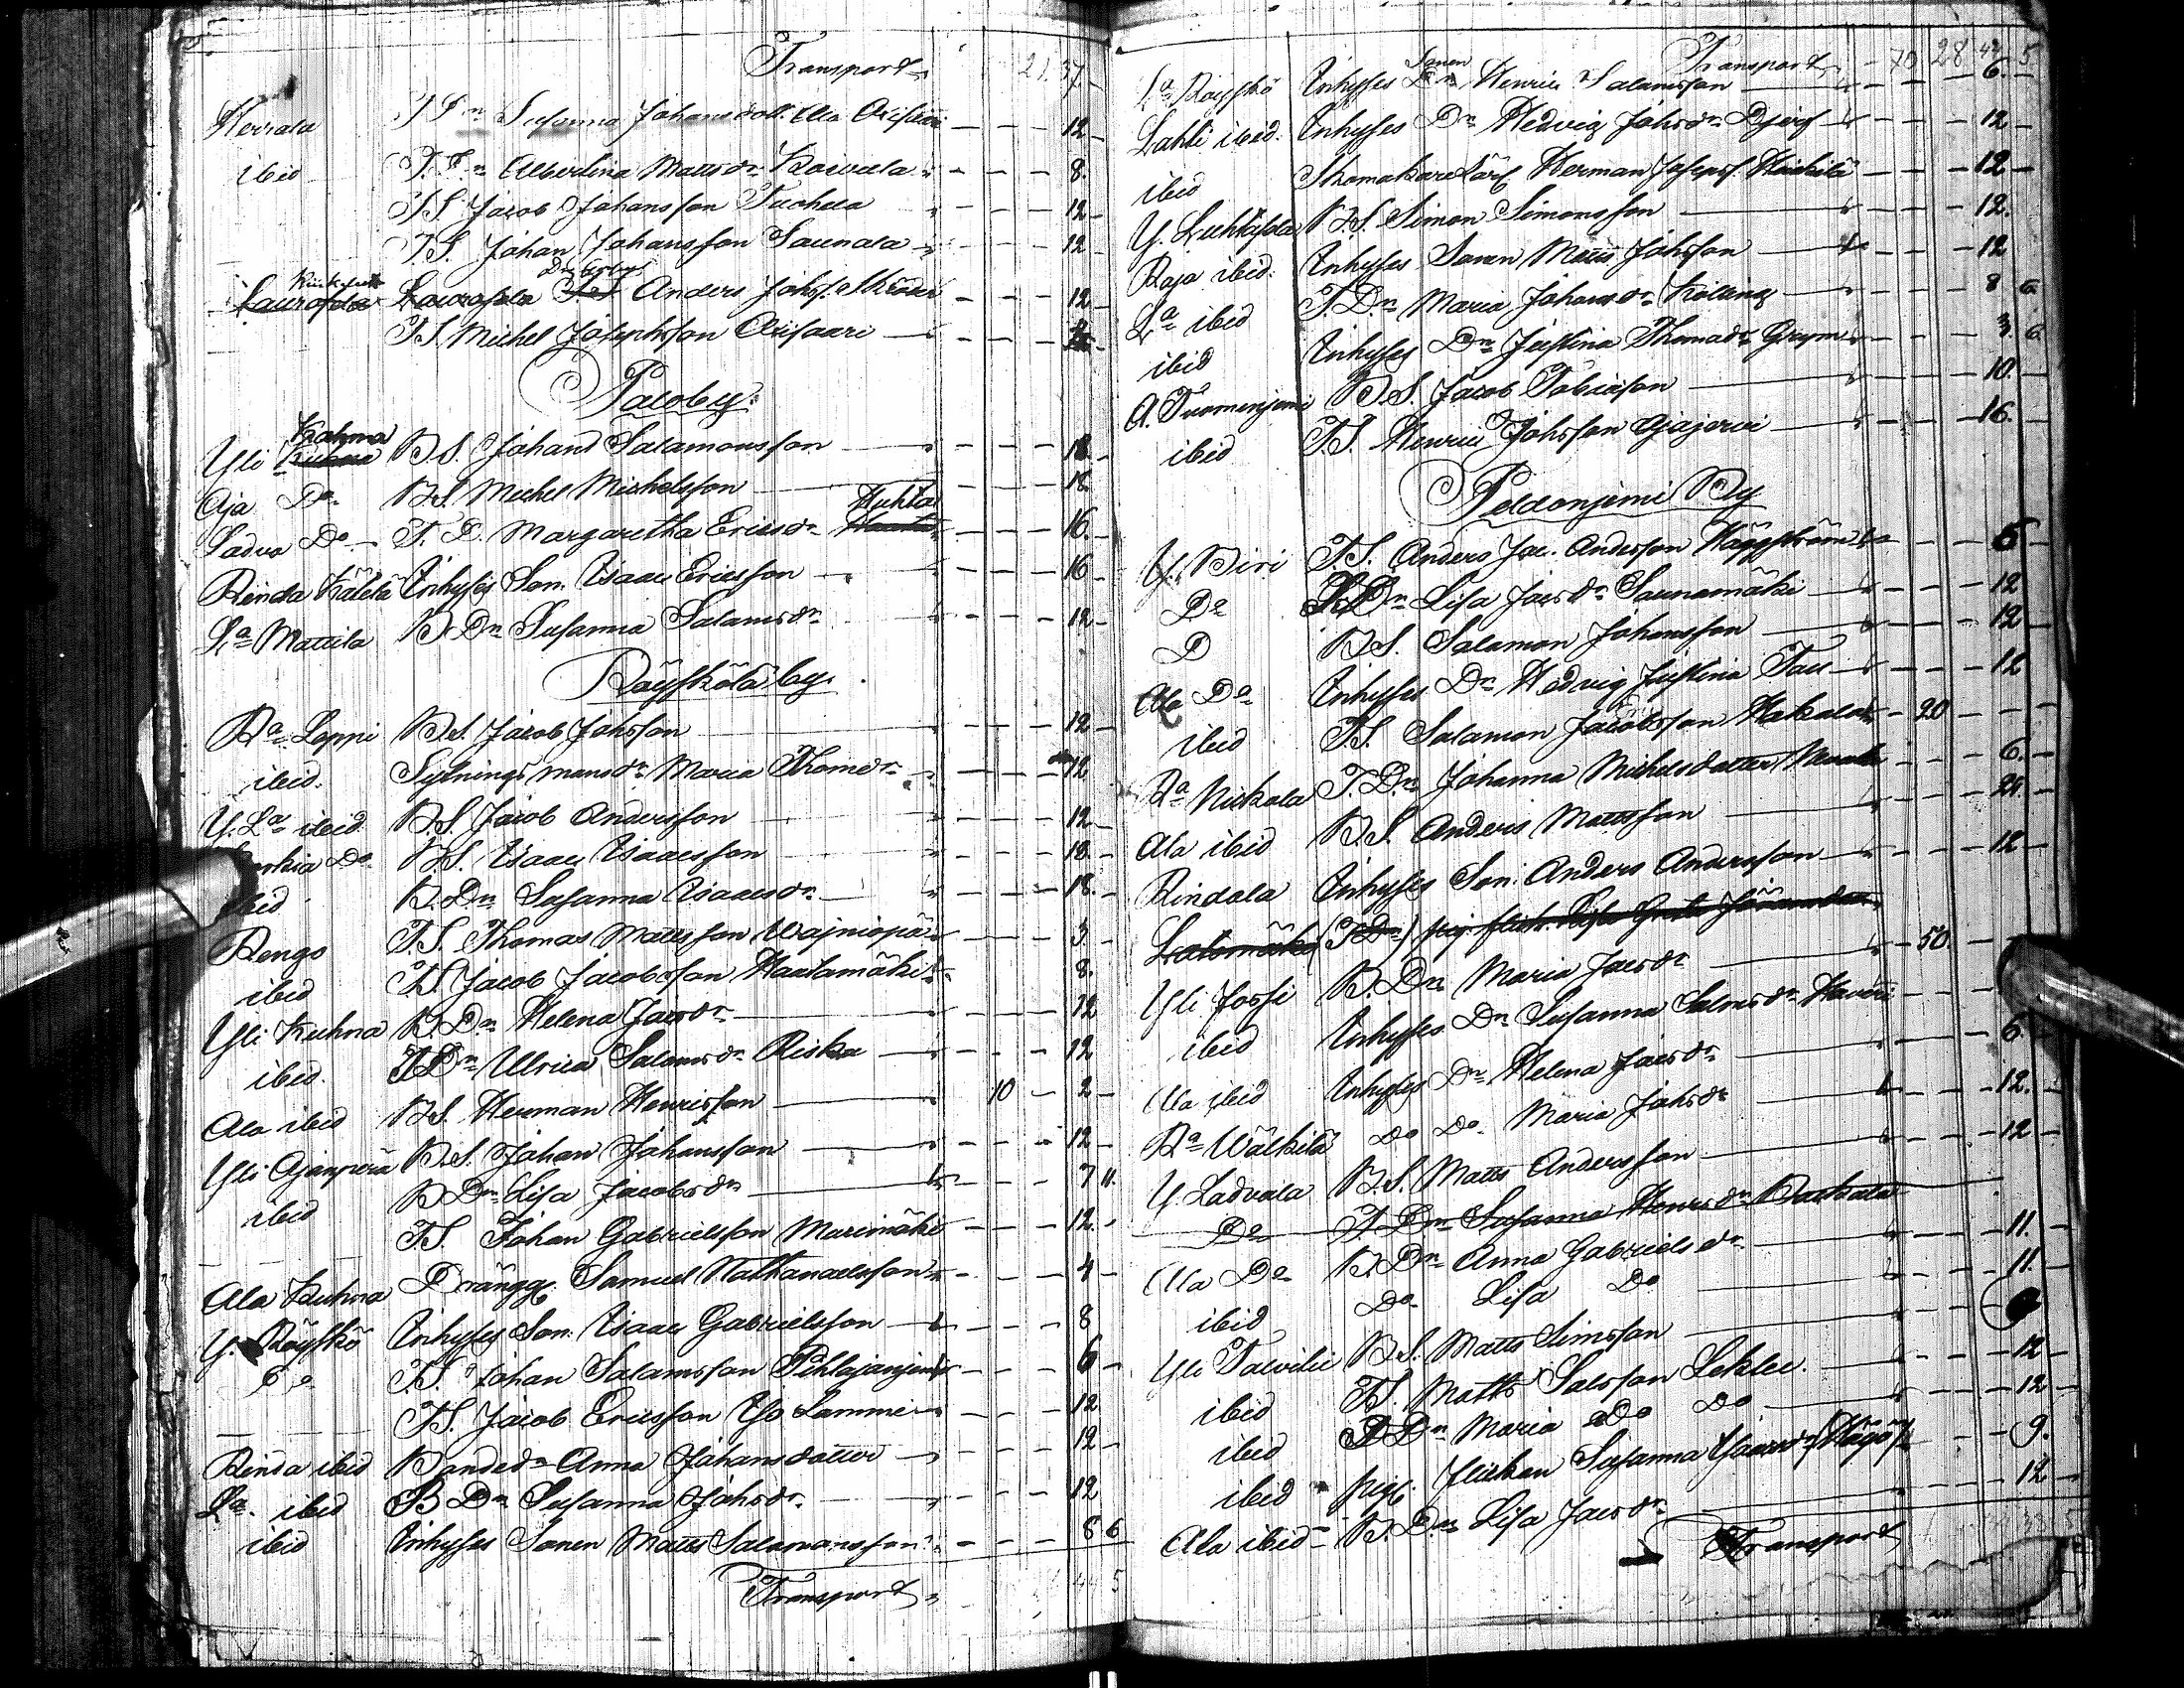 Transport 21.37.
Herrala T Dn Susanna Johansdott. Ala Arisaari 12
ibid T. Dn Albertina Mattsdr Koivula 8.
T S. Jacob Johansson Tuohela 12
T. S. Johan Johansson Saunala 12
Laurosela Laurosela TS Anders Johsf. 12
TS Michel Josephsson Arisaari
Palo by.
Yli Krahma Kuhna B S. Johan Salamonsson 18.
Aja Do B S. Michel Michelsson 18.
Ladvo Do T. D. Margaretha Ericsdr Huhta 16.
Rinda Kälelä Inhyses Son. Isaac Ericsson 16
La Mattila B Dn Susanna Salamsdr 12
Räyskölä by.
Ra Loppi B S. Jacob Johsson 12
ibid. Sytningsmansdr Maria Thomedr 12
Y. La ibid B. S. Jacob Andersson 12
Do B. S. Isaac Isaacsson 18.
ibid B. Dn Susanna Isaacsdr 18.
Rengo T. S. Thomas Mattsson Wajniopää 3
ibid T. S. Jacob Jacobsson Haatamäki 8.
Yli Kuhna B Dn Helena Jacsdr 12
ibid. T Dn Ulrica Salamsdr Riska 12
Ala ibid B S. Herman Henricsson 10 2
Yli Ajanperä B. S. Johan Johansson 12
ibid B Dn Lisa Jacobsdr 7 11.
T S. Johan Gabrielsson Marimäki 12.
Ala Kuhna Drängg. Samuel Nathanaelsson 4
Y. Räyskö Inhyses Son. Isaac Gabrielsson 8
Do T. S. Johan Salamsson Pihlajanjemi 6
T S. Jacob Ericsson Iso Lammi 12
Rinda ibid Bondedr Anna Johansdotter 12
La. ibid B Dn Susanna Johsdr. 12
ibid Inhyses Sonen Matts Salamonsson 8 6
Transport
Transport 70 28 42 5.
La Räyskö Inhyses Sonen Dn Henric Salamsson 6.
Lahti ibid. Inhyses Dn Hedvig Johsdr Djerf 12
ibid Skomakare Lärl Herman Josepsf. Heikilä 12
Y. Luhtasela B. S. Simon Simonsson 12.
Raja ibid. Inhyses Sonen Matts Johsson 12
La ibid T. Dn Maria Johansdr Kölling 8 6.
ibid Inhyses Dn Justina Thomasdr Grym 3. 6.
A. Tuomenjemi B. S. Jacob Tobiasson 10.
ibid T. S. Henric Johsson Ajajervi 16.
Peldonjemi By
Y. Biri T. S. Anders Jac. Andersson Häggström 6
Do T. Dn Lisa Jacsdr Saunamäki 12
D B. S. Salamon Johansson 12
Ala Do Inhyses Dn Hedvig Justina Tall 12
ibid T S. Salamon Jacobsson Hakala 20
Ra Nickola T. Dn Johanna Michelsdotter 6.
Ala ibid B. S. Anders Mattsson 24.
Rindala Inhyses Son. Anders Andersson 12
Latomäki (T Dn) pig. flick. Lisa Greta
Yli Jossi B. Dn Maria Jacsdr 50.
ibid Inhyses Dn Susanna Salmsdr Haveri
Ala ibid Inhyses Dn Helena Jacsdr. 6.
Ra Wälkilä Do Do. Maria Johsdr 12.
Y. Ladvala B. S. Matts Andersson 12
Do T. Dn Susanna Henrsdr Backala
Ala Do B. Dn Anna Gabrielsdr. 11.
ibid Do Lisa Do 11.
Yli Talvilie B S. Matts Simsson
ibid T S. Matts Salsson Leklee 12
ibid T Dn Maria Do Do 12
ibid pig. flickan Susanna Isacsdr 9.
Ala ibid B. Dn Lisa Jacsdr. 12
Transport